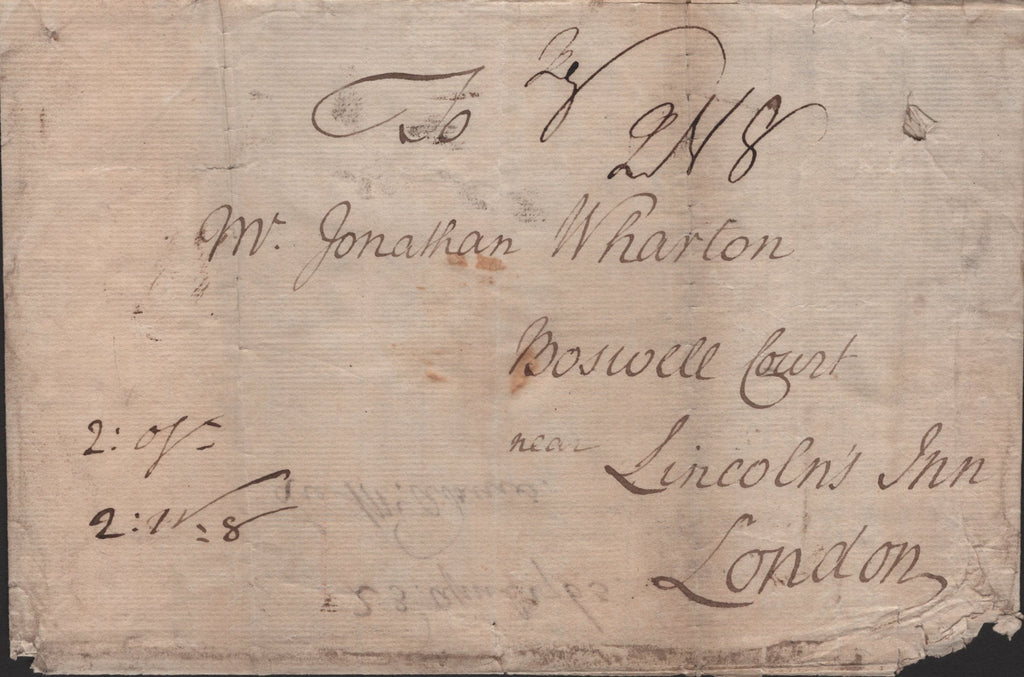 To
2N8
Mr. Jonathan Wharton
Boswell Court
near Lincoln's Inn
London
2: oz
2:N:8